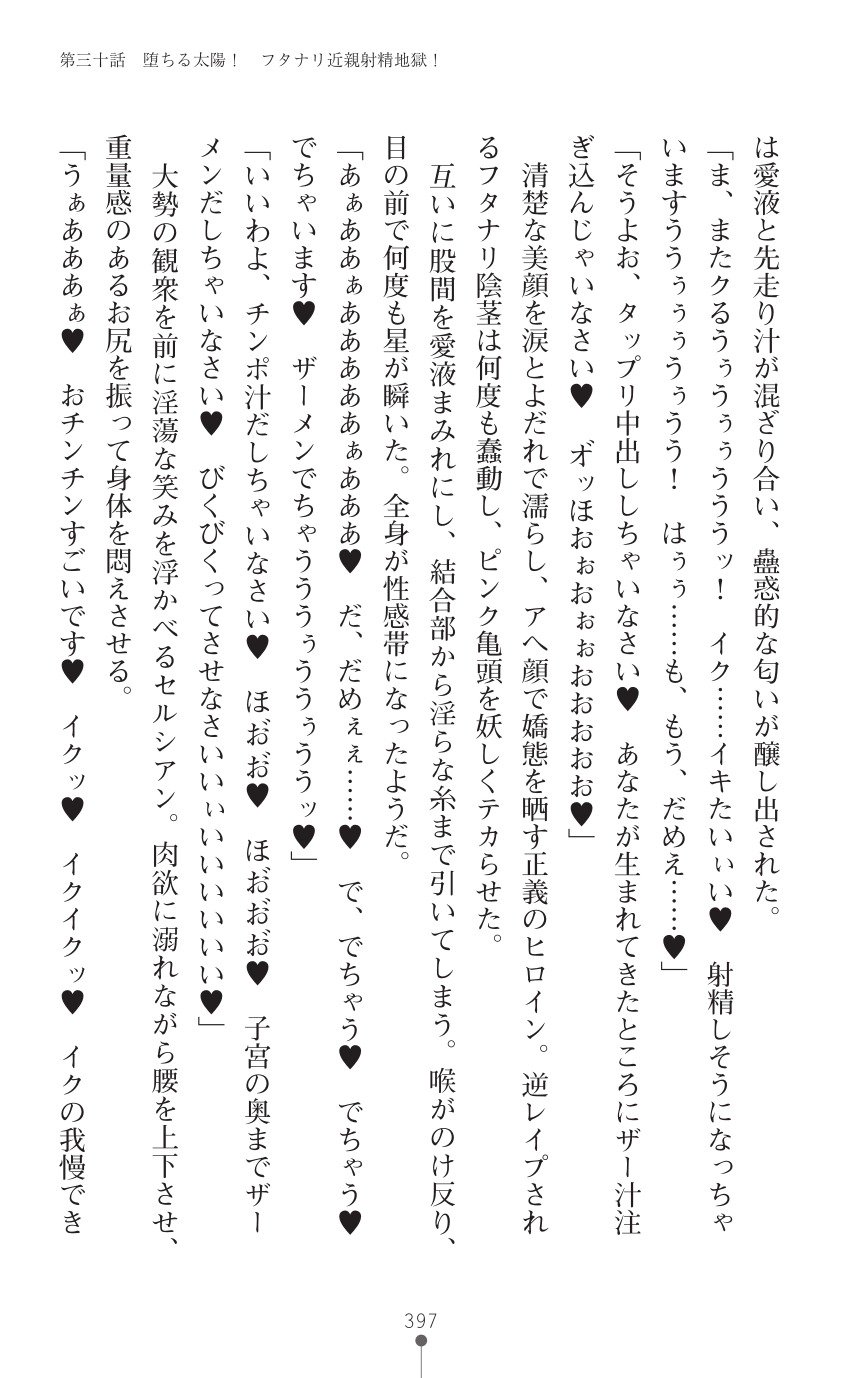 第三十話　堕ちる太陽！　フタナリ近親射精地獄！
は愛液と先走り汁が混ざり合い、蠱惑的な匂いが醸し出された。
「ま、またクるうぅうぅぅうううッ！　イク……イキたいぃい♥　射精しそうになっちゃ
いますううぅぅぅうぅうう！　はぅぅ……も、もう、だめえ……♥」
「そうよお、タップリ中出ししちゃいなさい♥　あなたが生まれてきたところにザー汁注
ぎ込んじゃいなさい♥　オ゛ッほおぉおぉぉおおおおお♥」
　清楚な美顔を涙とよだれで濡らし、アヘ顔で嬌態を晒す正義のヒロイン。逆レイプされ
るフタナリ陰茎は何度も蠢動し、ピンク亀頭を妖しくテカらせた。
　互いに股間を愛液まみれにし、結合部から淫らな糸まで引いてしまう。喉がのけ反り、
目の前で何度も星が瞬いた。全身が性感帯になったようだ。
「あぁああぁああああああぁあああ♥　だ、だめぇぇ……♥　で、でちゃう♥　でちゃう♥
でちゃいます♥　ザーメンでちゃうううぅううぅううッ♥」
「いいわよ、チンポ汁だしちゃいなさい♥　ほお゛お゛♥　ほお゛お゛お゛♥　子宮の奥までザー
メンだしちゃいなさい♥　びくびくってさせなさいいぃいいいいいい♥」
　大勢の観衆を前に淫蕩な笑みを浮かべるセルシアン。肉欲に溺れながら腰を上下させ、
重量感のあるお尻を振って身体を悶えさせる。
「うぁあああぁ♥　おチンチンすごいです♥　イクッ♥　イクイクッ♥　イクの我慢でき
397